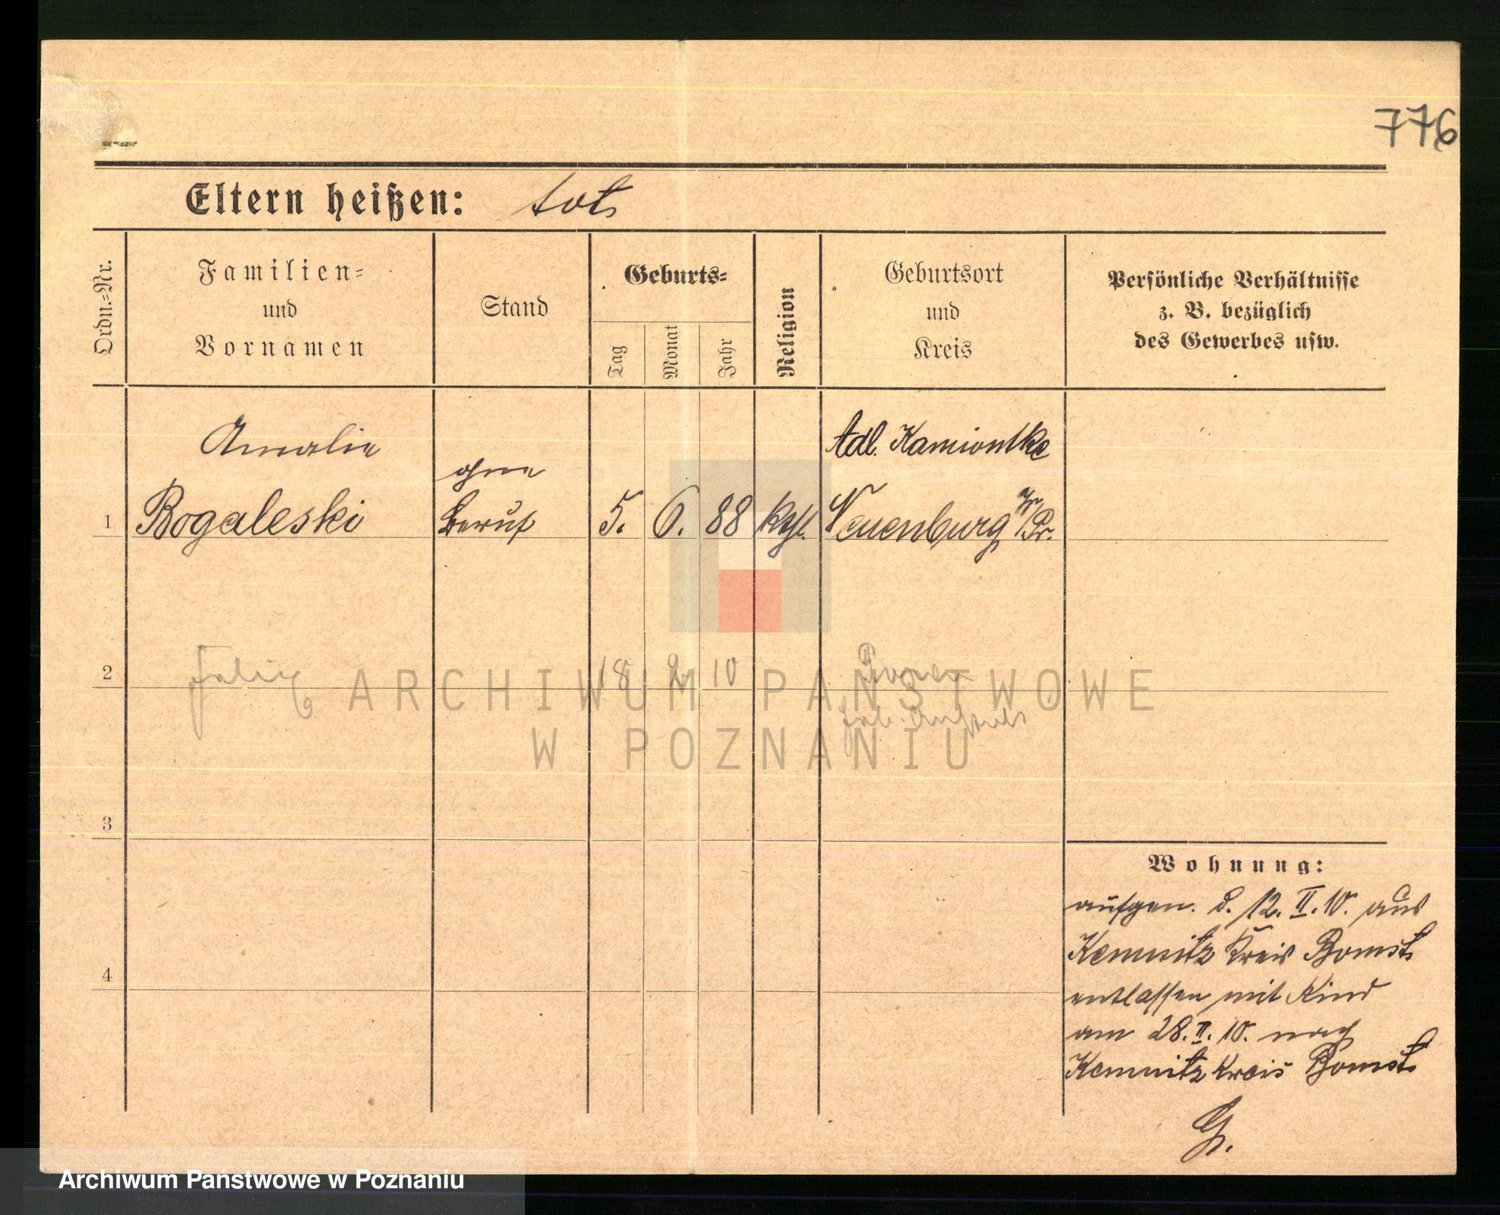 776
Eltern heißen: tot
Ordn.=Nr.
Familien=
und
Vornamen
Stand
Geburts=
Tag
Monat
Jahr
Religion
Geburtsort
und
Kreis
Persönliche Verhältnisse
z. B. bezüglich
des Gewerbes usw.
Amalie
ohne
Adl. Kamiontke
1 Bogaleski Beruf 5. 6. 88 kath. Neuenburg W/Pr.
2 Felix 18 2 10 Posen
3
Wohnung:
aufgen. d. 12. II. 10. aus
Kemnitz Kreis Bomst
4
entlassen mit Kind
am 28. II. 10. nach
Kemnitz Kreis Bomst
G.
ARCHIWUM PAŃSTWOWE
W POZNANIU
Archiwum Państwowe w Poznaniu